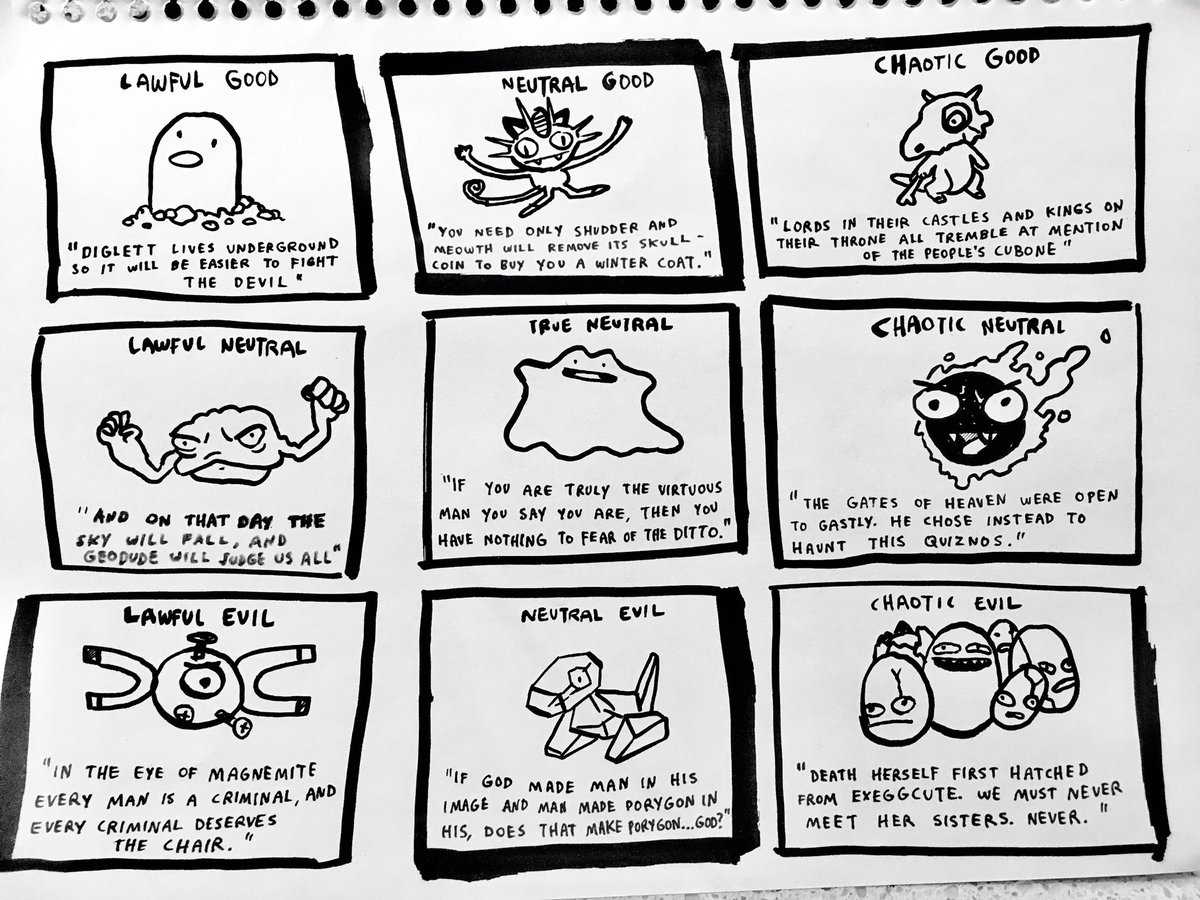 LAWFUL GOOD
"DIGLETT LIVES UNDERGROUND
SO IT WILL BE EASIER TO FIGHT
THE DEVIL"
NEUTRAL GOOD
"YOU NEED ONLY SHUDDER AND
MEOWTH WILL REMOVE ITS SKULL-
COIN TO BUY YOU A WINTER COAT."
CHAOTIC GOOD
"LORDS IN THEIR CASTLES AND KINGS ON
THEIR THRONE ALL TREMBLE AT MENTION
OF THE PEOPLE'S CUBONE"
LAWFUL NEUTRAL
"AND ON THAT DAY THE
SKY WILL FALL, AND
GEODUDE WILL JUDGE US ALL"
TRUE NEUTRAL
"IF YOU ARE TRULY THE VIRTUOUS
MAN YOU SAY YOU ARE, THEN YOU
HAVE NOTHING TO FEAR OF THE DITTO."
CHAOTIC NEUTRAL
"THE GATES OF HEAVEN WERE OPEN
TO GASTLY. HE CHOSE INSTEAD TO
HAUNT THIS QUIZNOS."
LAWFUL EVIL
"IN THE EYE OF MAGNEMITE
EVERY MAN IS A CRIMINAL, AND
EVERY CRIMINAL DESERVES
THE CHAIR."
NEUTRAL EVIL
"IF GOD MADE MAN IN HIS
IMAGE AND MAN MADE PORYGON IN
HIS, DOES THAT MAKE PORYGON...GOD?"
CHAOTIC EVIL
"DEATH HERSELF FIRST HATCHED
FROM EXEGGCUTE. WE MUST NEVER
MEET HER SISTERS. NEVER."